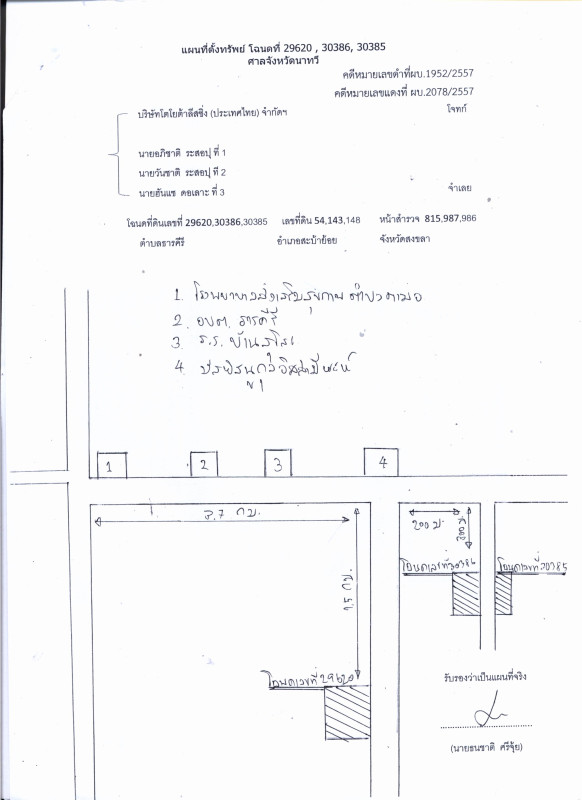 แผนที่ตั้งทรัพย์ โฉนดที่ 29620 , 30386, 30385
ศาลจังหวัดนาทวี
คดีหมายเลขดำที่ผบ.1952/2557
คดีหมายเลขแดงที่ ผบ.2078/2557
บริษัทโตโยต้าลีสซิ่ง (ประเทศไทย) จำกัดฯ โจทก์
นายอภิชาติ ระสอปุ ที่ 1
นายวันชาติ ระสอปุ ที่ 2
นายฮันแซ ดอเลาะ ที่ 3 จำเลย
โฉนดที่ดินเลขที่ 29620,30386,30385 เลขที่ดิน 54,143,148 หน้าสำรวจ 815,987,986
ตำบลธารคีรี อำเภอสะบ้าย้อย จังหวัดสงขลา
1. โรงพยาบาลส่งเสริมสุขภาพ
2. อบต. ธารคีรี
3. ร.ร. บ้าน
4.
1 2 3 4
3.7 กม.
200 ม.
1.5 กม.
โฉนดเลขที่30386
โฉนดเลขที่30385
โฉนดเลขที่ 29620
รับรองว่าเป็นแผนที่จริง
(นายธนชาติ ศรีจุ้ย)